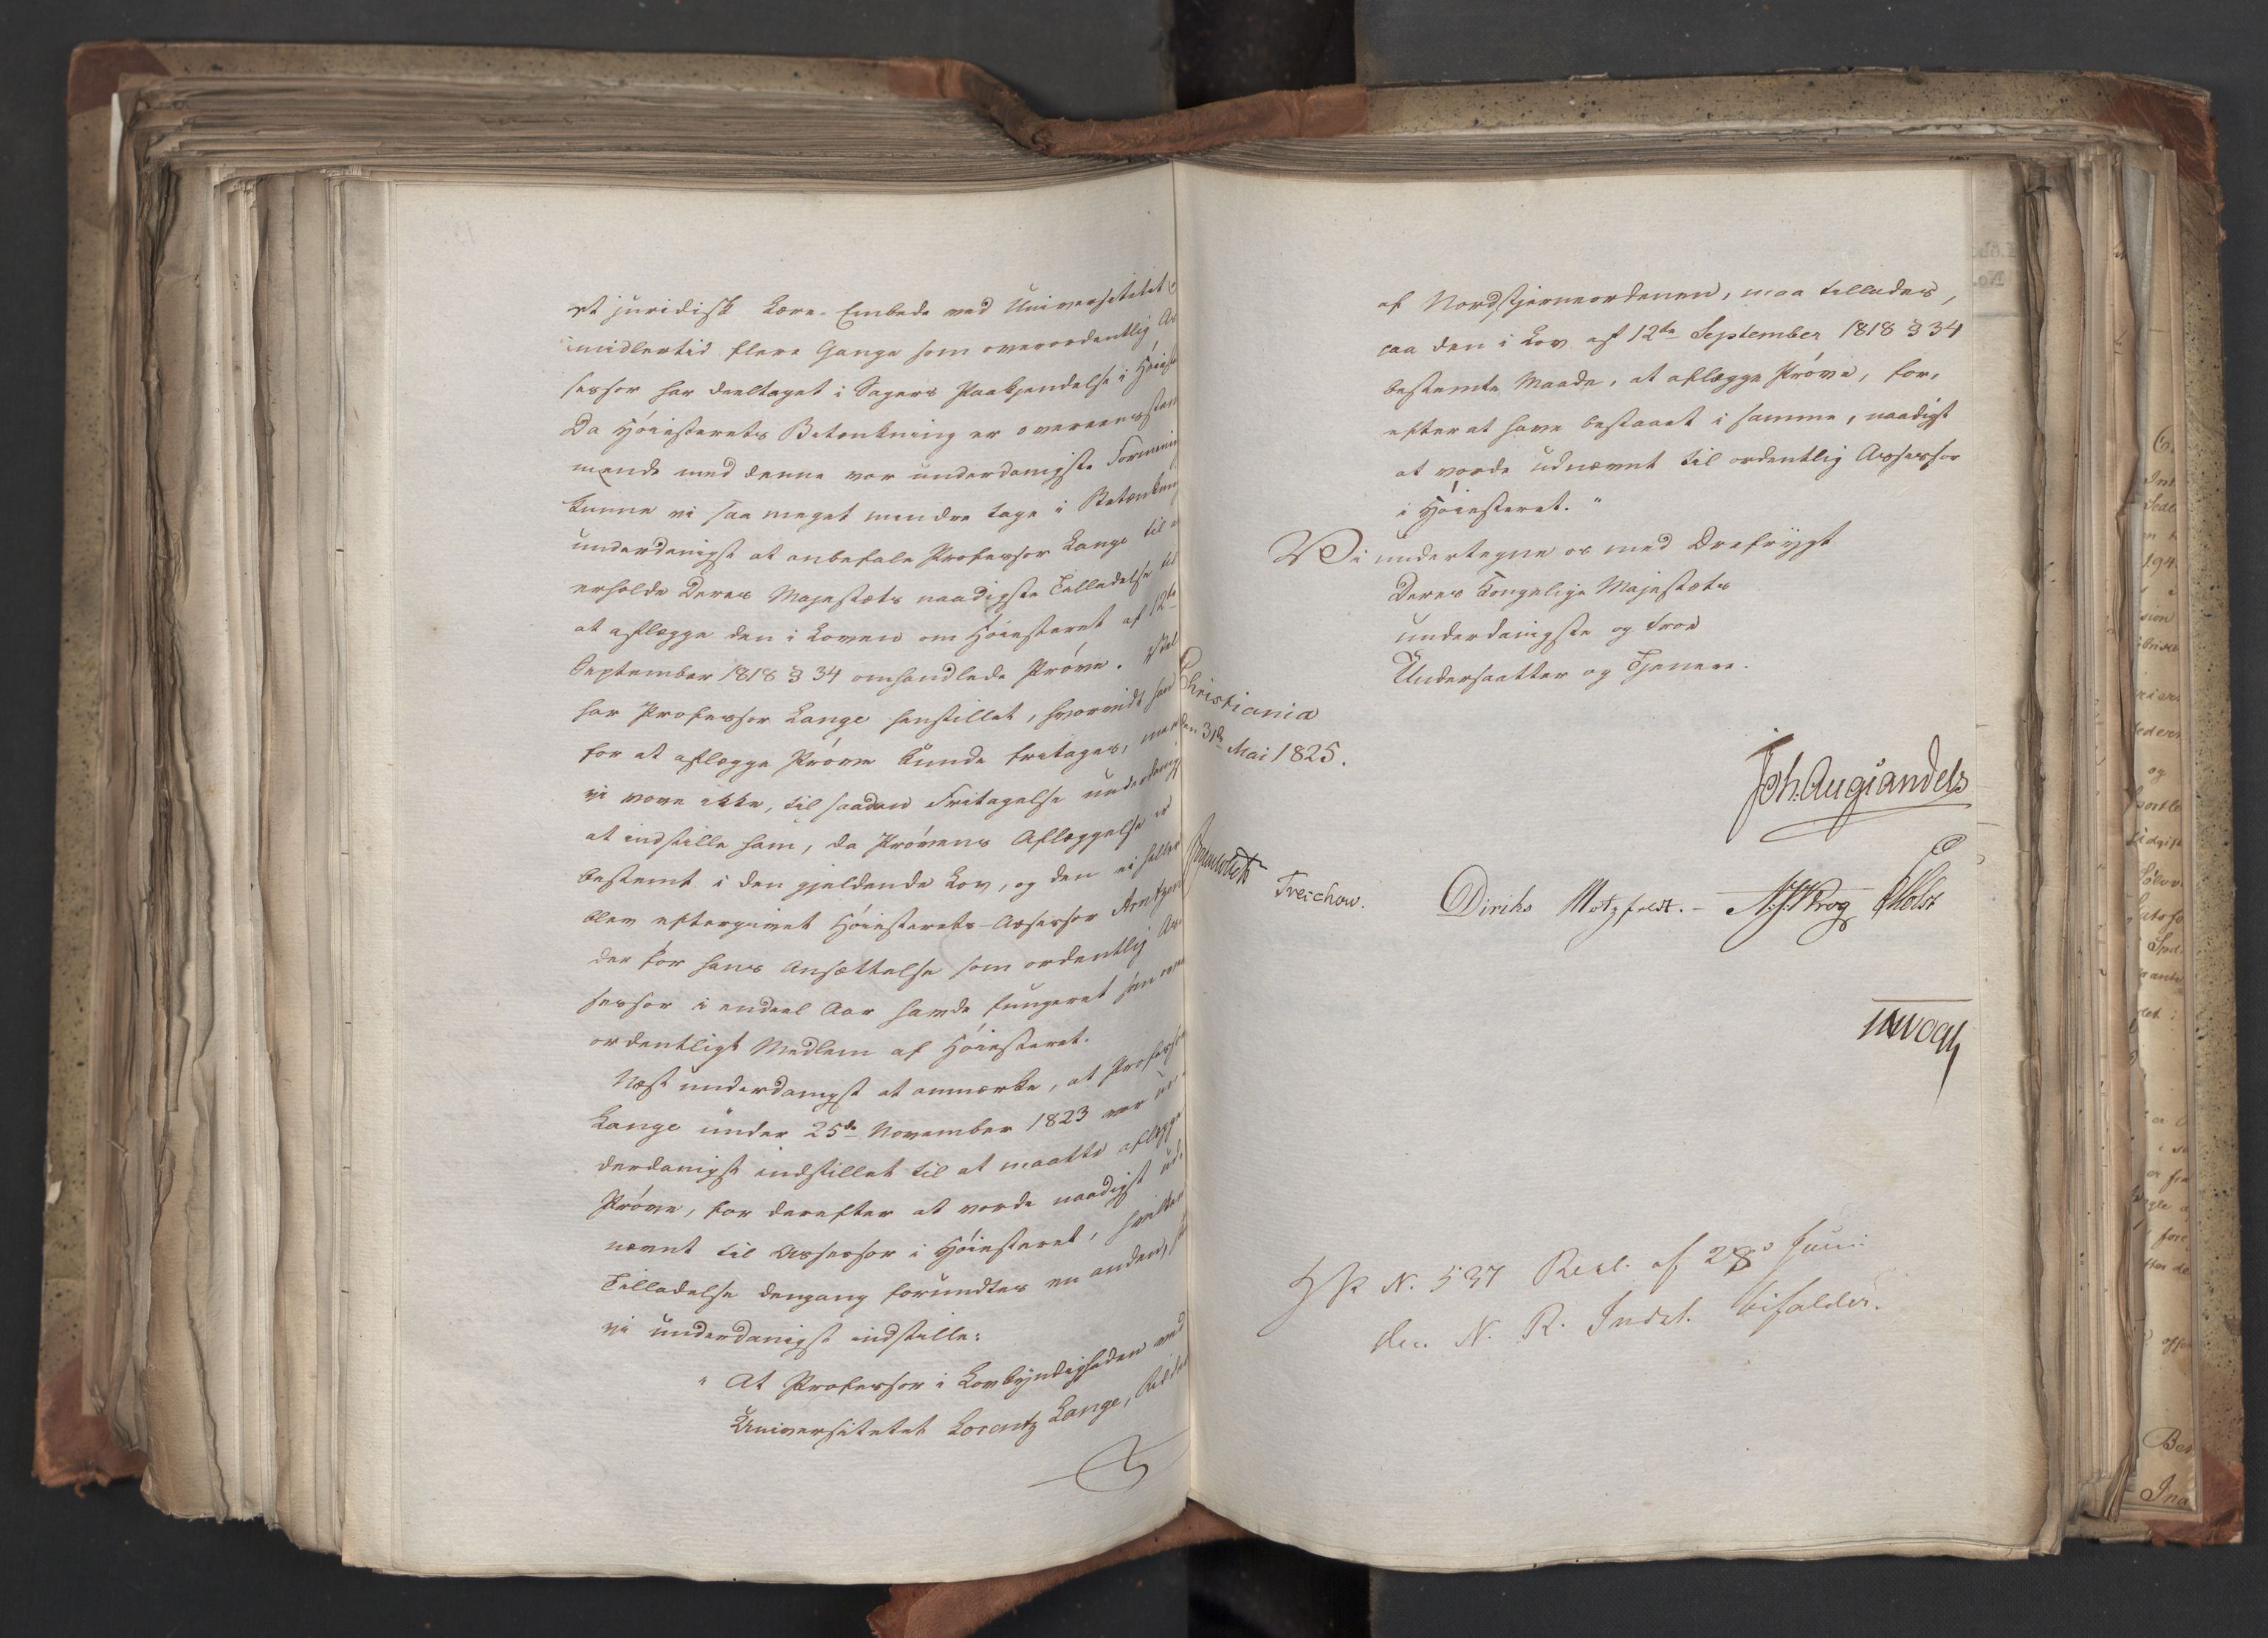 et juridisk Lære-Embede ved Universitetet
imidlertid flere Gange som overordentlig As
sessor har deeltaget i Sagers Paakjendelse i Høieste
Da Høiesterets Betænkning er overeensstem
mende med denne vor underdanigste Formening
kunne vi saa meget mindre tage i Betænkning
underdanigst at anbefale Professor Lange til
erholde Deres Majestæts naadigste Tilladelse til
at aflægge den i Loven om Høiesteret af 12te
September 1818 § 34 omhandlede Prøve. Vel
har Professor Lange henstillet, hvorvidt han
for at aflægge Prøve kunde fritages, men
vi vove ikke, til saadan Fritagelse underdanig
at indstille ham, da Prøvens Aflæggelse er
bestemt i den gjeldende Lov, og den ei heller
blev eftergivet Høiesterets-Assessor Arntzen
der før hans Ansættelse som ordentlig As
sessor i endeel Aar havde fungeret som over
ordentligt Medlem af Høiesteret.
Næst underdanigst at anmærke, at Professor
Lange under 25de November 1823 var un
derdanigst indstillet til at maatte aflægge
Prøve, for derefter at vorde naadigst ud
nævnt til Assessor i Høiesteret, hvilken
Tilladelse dengang forundtes en anden,
vi underdanigst indstille:
" At Professor i Lovkyndigheden ved
Universitetet Lorentz Lange, Ridder
af Nordstjerneordenen, maa tillades,
paa den i Lov af 12te September 1818 § 34
bestemte Maade, at aflægge Prøve, for,
efter at have bestaaet i samme, naadigst
at vorde udnævnt til ordentlig Assessor
i Høiesteret."
Vi undertegne os med Ærefrygt
Deres Kongelige Majestæts
underdanigste og troe
Undersaatter og Tjenere.
Christiania
den 31te Mai 1825.
Joh. Aug. Sandels
Treschow. Diriks Motzfeldt. - N. J. Krog Holst
Vogt
N. 537 Resl. af 28 Juni
den N. R. Indst. bifaldes.